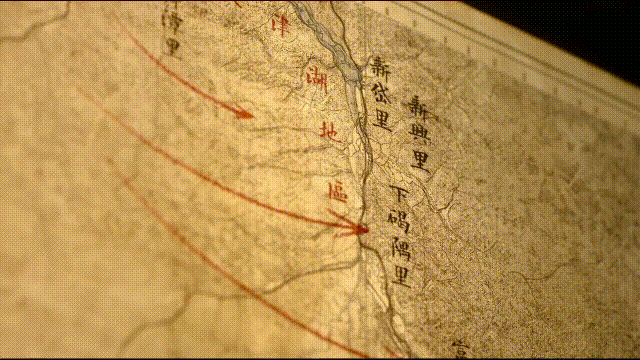 里
津湖地區
新岱里
新興里
下碣隅里